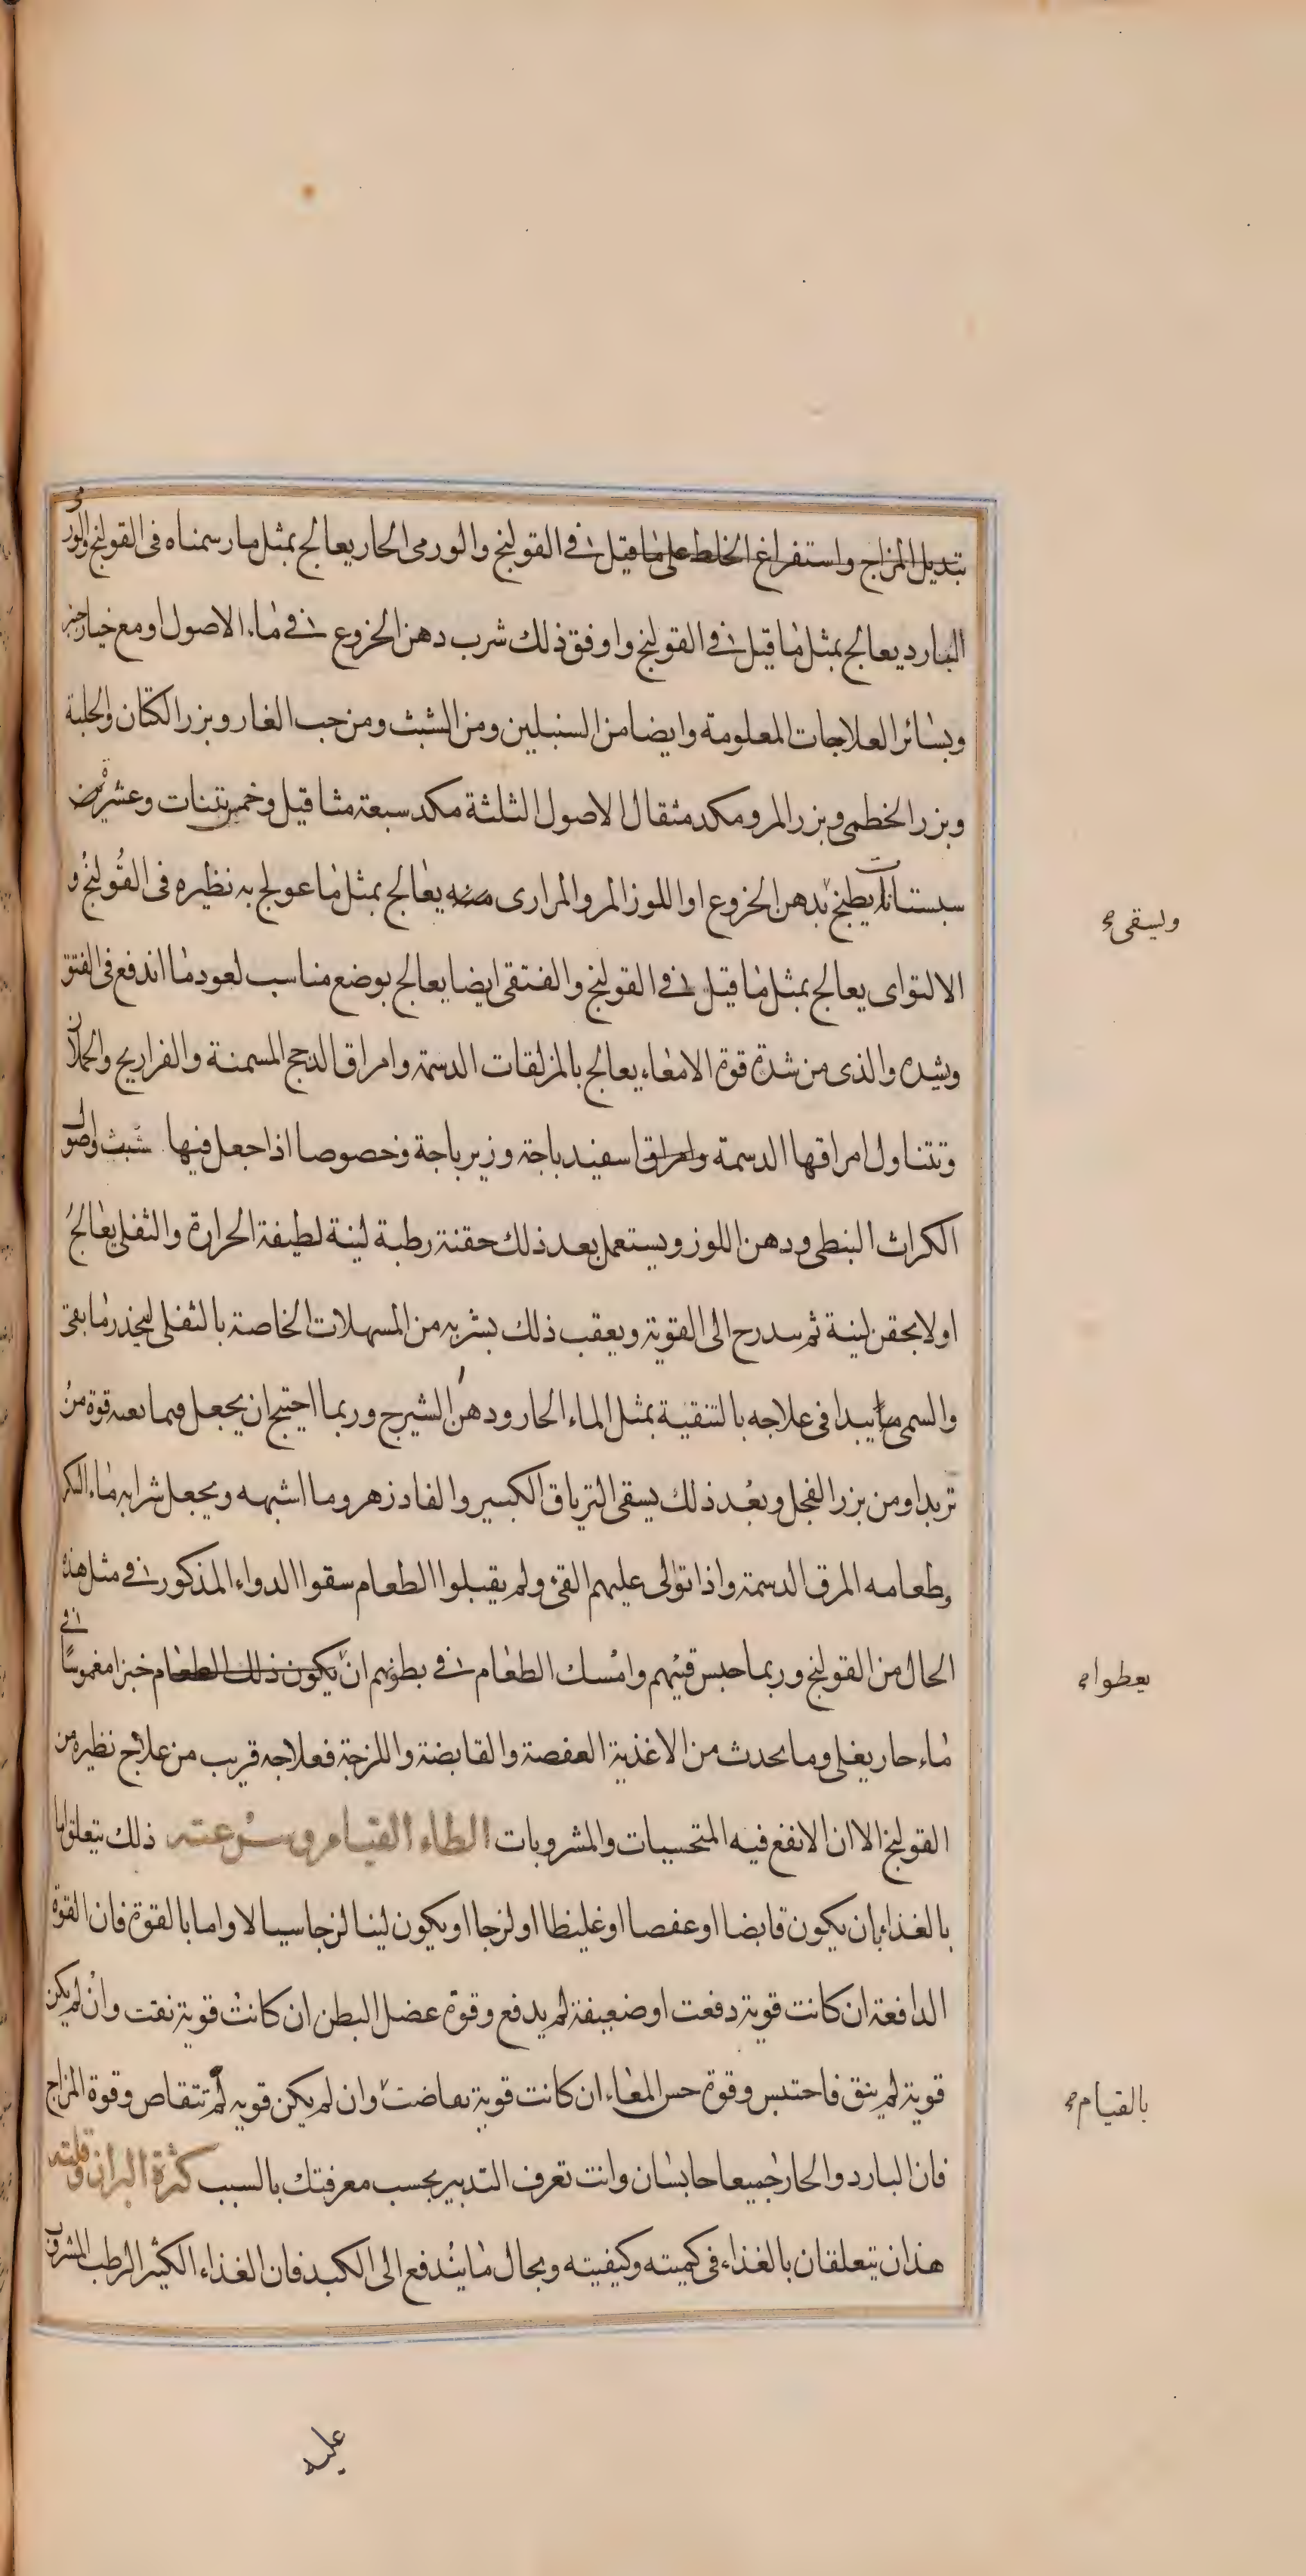 بتديل المزاج واستفراغ الخلط على ما قيل في القولنج والورمى الحار يعالج بمثل ما رسمناه فى القولنج والورمى
البارد يعالج بمثل ما قيل في القولنج واوفق ذلك شرب دهن الخروع في ماء الاصول او مع خيار
وبسائر العلاجات المعلومة وايضا من السنبلين ومن الشبث ومن حب الغار وبزر الكتان والحلبة
وبزر الخطمى وبزر المرو مكد مثقال الاصول الثلثة مكد سبعة مثاقيل وخمس تينات وعشرة
سبستانات يطبخ بدهن الخروع او اللوز المر والمرارى منه يعالج بمثل ما عولج به نظيره فى القولنج و
ويسقى
الالتواى يعالج بمثل ما قيل في القولنج والفتقى ايضا يعالج بوضع مناسب لعود ما اندفع فى الفتق
وبشده والذى من شدة قوة الامعاء يعالج بالمزلقات الدسمة وامراق الدجج المسمنة والفراريج والحملان
وتتناول امراقها الدسمة وامراق اسفيدباجة وزيرباجة وخصوصا اذا جعل فيها شبث واصول
الكراث النبطى ودهن اللوز ويستعمل بعد ذلك حقنة رطبة لينة لطيفة الحرارة والثفلى يعالج
اولا بحقن لينة ثم يتدرج الى القوية ويعقب ذلك بشربه من المسهلات الخاصة بالثفلى ليحذر ما بقى
والسمى يبدا فى علاجه بالتنقية بمثل الماء الحار ودهن الشيرج وربما احتيج ان يجعل فيما قوة من
تربد او من بزر الفجل وبعد ذلك يسقى الترياق الكبير والفادزهر وما اشبهه ويجعل شرابه ماء السكر
وطعامه المرق الدسمة واذا توالى عليهم القئ ولم يقبلوا الطعام سقوا الدواء المذكور في مثل هذه
الحال من القولنج وربما حبس قيئهم وامسك الطعام في بطونهم ان يكون ذلك الطعام خبزا مغموسا في
يعطوا
ماء حار يغلى وما يحدث من الاغذية العفصة والقابضة واللزجة فعلاجه قريب من علاج نظيره من
القولنج الا ان الانفع فيه المتحسيات والمشروبات ابطاء القيام وسرعته ذلك يتعلق اما
بالغذاء بان يكون قابضا او عفصا او غليظا او لزجا او يكون لينا لزجا سيالا واما بالقوة فان القوة
الدافعة ان كانت قوية دفعت او ضعيفة لم يدفع وقوة عضل البطن ان كانت قوية نقت وان لم يكن
قوية لم ينق فاحتبس وقوة حس المعاء ان كانت قوية تقاضت وان لم يكن قويه لم تتقاص وقوة المزاج
بالقيام
فان البارد والحار جميعا حابسان وانت تعرف التدبير بحسب معرفتك بالسبب كثرة البراز وقلته
هذان يتعلقان بالغذاء فى كميته وكيفيته وبحال ما يندفع الى الكبد فان الغذاء الكثير الرطب المشروب
عليه